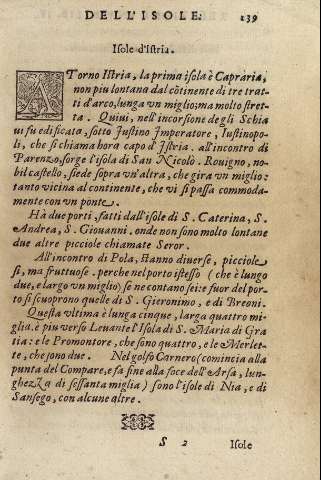 DELL'ISOLE. 139
Isole d'Istria.
ATorno Istria, la prima isola è Capraria,
non piu lontana dal cõtinente di tre tratti
ti d'arco, lunga vn miglio; ma molto stretta
ta. Quiui, nell'incorsione de gli Schia
ui fu edificata, sotto Iustino Imperatore, Iustinopo-
li, che si chiama hora capo d'Istria. all'incontro di
Parenzo, sorge l'isola di San Nicolò. Rouigno, no-
bil castello, siede sopra vn'altra, che gira vn miglio:
tanto vicina al continente, che vi si passa commoda-
mente con vn ponte.
Hà due porti, fatti dall'isole di S. Caterina, S.
Andrea, S. Giouanni. onde non sono molto lontane
due altre picciole chiamate Seror.
All'incontro di Pola, stanno diuerse, picciole
sì, ma fruttuose. perche nel porto istesso (che è lungo
due, e largo vn miglio) se ne contano sei: e fuor del por-
to si scuoprono quelle di S. Gieronimo, e di Breoni.
Questa vltima è lunga cinque, larga quattro mi-
glia. è piu verso Leuante l'Isola di S. Maria di Gra
tia: e le Promontore, che sono quattro, e le Merlet-
te, che sono due. Nel golfo Carnero (comincia alla
punta del Compare, e fà fine alla foce dell'Arsa, lun-
ghezza di sessanta miglia) sono l'isole di Nia, e di
Sansego, con alcune altre.
S 2 Isole